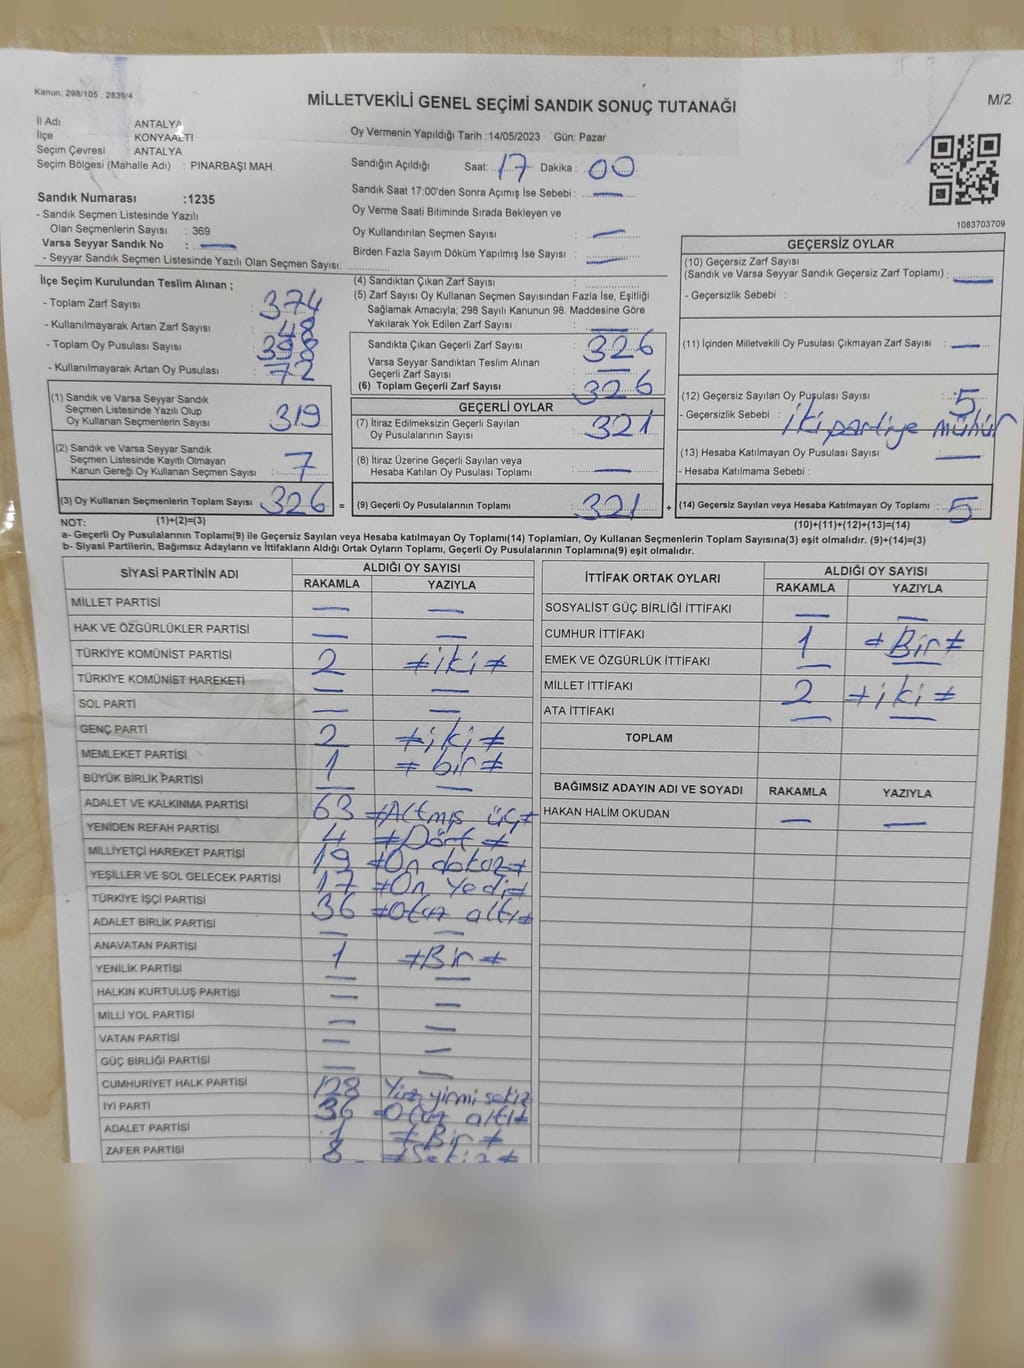 Kanun: 298/105 , 2839/4
MİLLETVEKİLİ GENEL SEÇİMİ SANDIK SONUÇ TUTANAĞI
M/2
İl Adı ANTALYA
İlçe KONYAALTI
Seçim Çevresi ANTALYA
Seçim Bölgesi (Mahalle Adı) : PINARBAŞI MAH.
Sandık Numarası :1235
- Sandık Seçmen Listesinde Yazılı
Olan Seçmenlerin Sayısı : 369
Varsa Seyyar Sandık No : —
- Seyyar Sandık Seçmen Listesinde Yazılı Olan Seçmen Sayısı:
Oy Vermenin Yapıldığı Tarih :14/05/2023 Gün: Pazar
Sandığın Açıldığı Saat: 17 Dakika : 00
Sandık Saat 17:00'den Sonra Açımış İse Sebebi : —
Oy Verme Saati Bitiminde Sırada Bekleyen ve
Oy Kullandırılan Seçmen Sayısı : —
Birden Fazla Sayım Döküm Yapılmış İse Sayısı : —
1083703709
İlçe Seçim Kurulundan Teslim Alınan ;
- Toplam Zarf Sayısı : 374
- Kullanılmayarak Artan Zarf Sayısı : 48
- Toplam Oy Pusulası Sayısı : 398
- Kullanılmayarak Artan Oy Pusulası : 72
(1) Sandık ve Varsa Seyyar Sandık
Seçmen Listesinde Yazılı Olup
Oy Kullanan Seçmenlerin Sayısı : 319
(2) Sandık ve Varsa Seyyar Sandık
Seçmen Listesinde Kayıtlı Olmayan
Kanun Gereği Oy Kullanan Seçmen Sayısı : 7
(3) Oy Kullanan Seçmenlerin Toplam Sayısı : 326 =
(4) Sandıktan Çıkan Zarf Sayısı :
(5) Zarf Sayısı Oy Kullanan Seçmen Sayısından Fazla İse, Eşitliği
Sağlamak Amacıyla; 298 Sayılı Kanunun 98. Maddesine Göre
Yakılarak Yok Edilen Zarf Sayısı : —
Sandıkta Çıkan Geçerli Zarf Sayısı : 326
Varsa Seyyar Sandıktan Teslim Alınan
Geçerli Zarf Sayısı : —
(6) Toplam Geçerli Zarf Sayısı : 326
GEÇERLİ OYLAR
(7) İtiraz Edilmeksizin Geçerli Sayılan
Oy Pusulalarının Sayısı : 321
(8) İtiraz Üzerine Geçerli Sayılan veya
Hesaba Katılan Oy Pusulası Toplamı : —
(9) Geçerli Oy Pusulalarının Toplamı : 321 +
GEÇERSİZ OYLAR
(10) Geçersiz Zarf Sayısı
(Sandık ve Varsa Seyyar Sandık Geçersiz Zarf Toplamı) : —
- Geçersizlik Sebebi :
(11) İçinden Milletvekili Oy Pusulası Çıkmayan Zarf Sayısı : —
(12) Geçersiz Sayılan Oy Pusulası Sayısı : 5
- Geçersizlik Sebebi : iki partiye mühür
(13) Hesaba Katılmayan Oy Pusulası Sayısı : —
- Hesaba Katılmama Sebebi :
(14) Geçersiz Sayılan veya Hesaba Katılmayan Oy Toplamı : 5
NOT: (1)+(2)=(3)
(10)+(11)+(12)+(13)=(14)
a- Geçerli Oy Pusulalarının Toplamı(9) ile Geçersiz Sayılan veya Hesaba katılmayan Oy Toplamı(14) Toplamları, Oy Kullanan Seçmenlerin Toplam Sayısına(3) eşit olmalıdır. (9)+(14)=(3)
b- Siyasi Partilerin, Bağımsız Adayların ve İttifakların Aldığı Ortak Oyların Toplamı, Geçerli Oy Pusulalarının Toplamına(9) eşit olmalıdır.
SİYASİ PARTİNİN ADI ALDIĞI OY SAYISI
RAKAMLA YAZIYLA
MİLLET PARTİSİ — —
HAK VE ÖZGÜRLÜKLER PARTİSİ — —
TÜRKİYE KOMÜNİST PARTİSİ 2 ≠iki≠
TÜRKİYE KOMÜNİST HAREKETİ — —
SOL PARTİ — —
GENÇ PARTİ 2 ≠iki≠
MEMLEKET PARTİSİ 1 ≠bir≠
BÜYÜK BİRLİK PARTİSİ — —
ADALET VE KALKINMA PARTİSİ 63 ≠Altmış üç≠
YENİDEN REFAH PARTİSİ 4 ≠Dört≠
MİLLİYETÇİ HAREKET PARTİSİ 19 ≠On dokuz≠
YEŞİLLER VE SOL GELECEK PARTİSİ 17 ≠On yedi≠
TÜRKİYE İŞÇİ PARTİSİ 36 ≠Otuz altı≠
ADALET BİRLİK PARTİSİ — —
ANAVATAN PARTİSİ 1 ≠Bir≠
YENİLİK PARTİSİ — —
HALKIN KURTULUŞ PARTİSİ — —
MİLLİ YOL PARTİSİ — —
VATAN PARTİSİ — —
GÜÇ BİRLİĞİ PARTİSİ — —
CUMHURİYET HALK PARTİSİ 128 Yüz yirmi sekiz
İYİ PARTİ 36 ≠Otuz altı≠
ADALET PARTİSİ 1 ≠Bir≠
ZAFER PARTİSİ 8 ≠Sekiz≠
İTTİFAK ORTAK OYLARI ALDIĞI OY SAYISI
RAKAMLA YAZIYLA
SOSYALİST GÜÇ BİRLİĞİ İTTİFAKI — —
CUMHUR İTTİFAKI 1 ≠Bir≠
EMEK VE ÖZGÜRLÜK İTTİFAKI — —
MİLLET İTTİFAKI 2 ≠iki≠
ATA İTTİFAKI — —
TOPLAM
BAĞIMSIZ ADAYIN ADI VE SOYADI RAKAMLA YAZIYLA
HAKAN HALİM OKUDAN — —